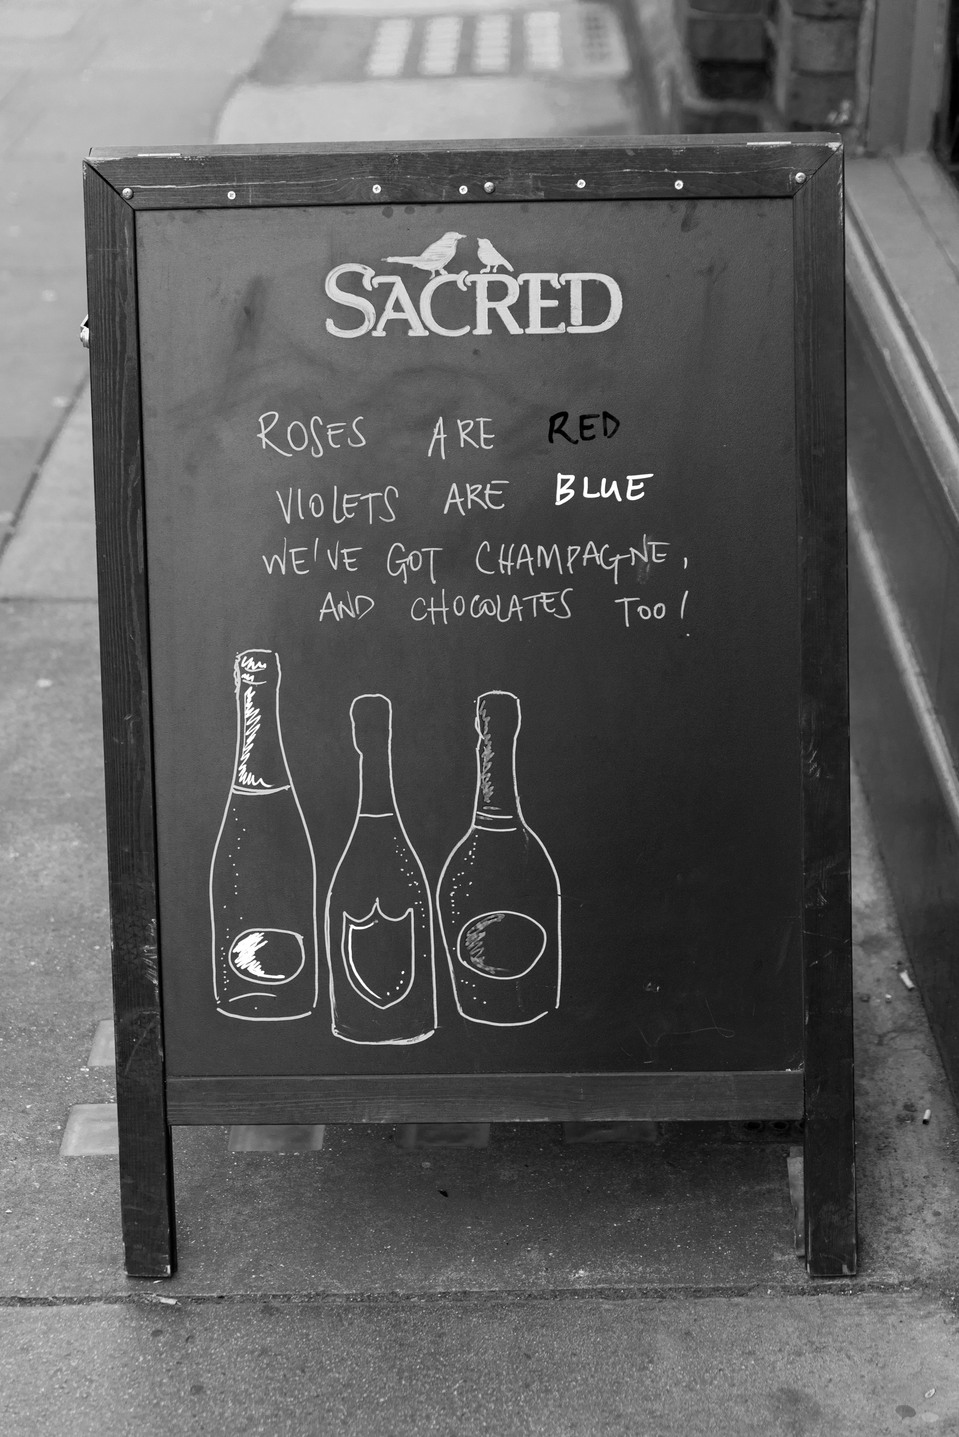 SACRED
ROSES ARE RED
VIOLETS ARE BLUE
WE'VE GOT CHAMPAGNE,
AND CHOCOLATES TOO!